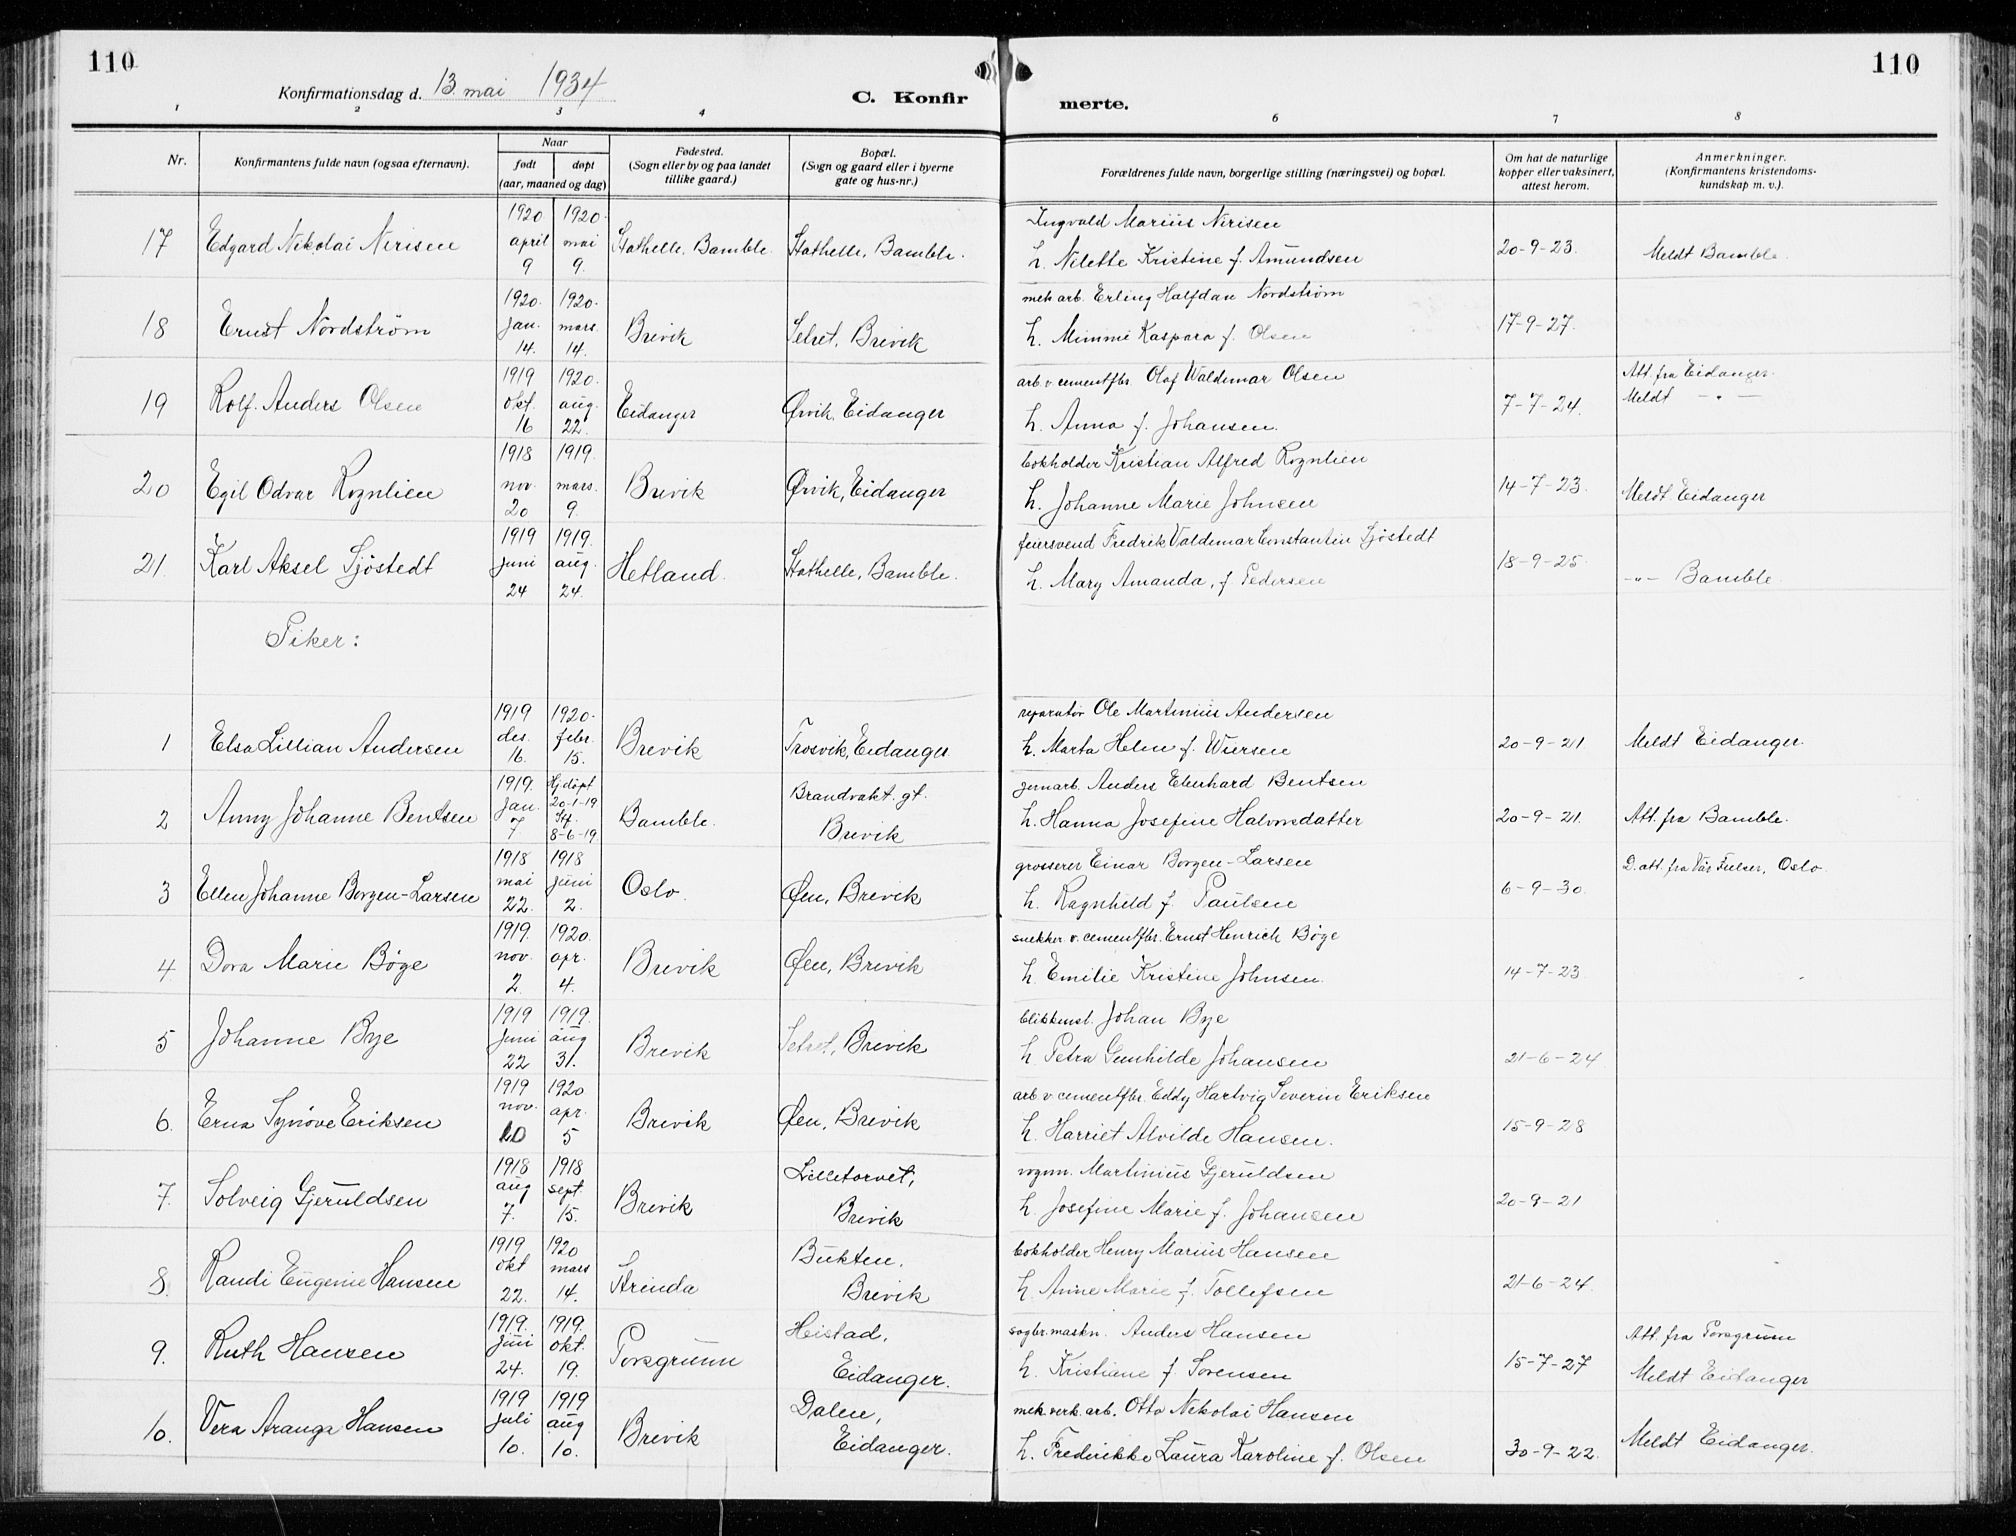 110
110
Konfirmationsdag d. 13. mai 1934
C. Konfir
merte.
1 2 3 4 6 7 8
Nr.
Konfirmantens fulde navn (ogsaa efternavn).
Naar
født døpt
(aar, maaned og dag)
Fødested.
(Sogn eller by og paa landet
tillike gaard.)
Bopæl.
(Sogn og gaard eller i byerne
gate og hus-nr.)
Forældrenes fulde navn, borgerlige stilling (næringsvei) og bopæl.
Om hat de naturlige
kopper eller vaksinert,
attest herom.
Anmerkninger.
(Konfirmantens kristendoms-
kundskap m. v.).
1920 1920. Ingvald Marius Nirisen
17 Edgard Nikolai Nirisen april mai Stathelle, Bamble. Stathelle, Bamble. 20-9-23. Meldt Bamble.
9 9. h. Nilette Kristine f. Amundsen
1920. 1920. mek arb. Erling Halfdan Nordstrøm
18 Ernst Nordstrøm jan. mars. Brevik Setret, Brevik 17-9-27.
14. 14. h. Mimmi Kaspara f. Olsen
1919 1920. arb. v. cementfbr. Olaf Waldemar Olsen Att. fra Eidanger.
19 Rolf Anders Olsen okt. aug. Eidanger Ørvik, Eidanger 7-7-24. Meldt - " -
16 22. h. Anna f. Johansen.
1918 1919. bokholder Kristian Alfred Rognlien
20 Egil Odvar Rognlien nov. mars. Brevik Ørvik, Eidanger 14-7-23. Meldt Eidanger
20 9. h. Johanne Marie Johnsen
1919 1919. feiersvend Fredrik Valdemar Constantin Sjøstedt
21. Karl Aksel Sjøstedt juni aug. Hetland. Stathelle, Bamble. 18-9-25. -"- Bamble.
24 24. h. Mary Amanda, f. Pedersen
Piker:
1919 1920. reparatør Ole Martinius Andersen
1 Elsa Lillian Andersen des. febr. Brevik Trosvik, Eidanger 20-9-21. Meldt Eidanger.
16. 15. h. Marta Helen f. Wiersen
1919. Hj.døpt Brandvakt. gt. jernarb. Anders Eberhard Bentsen
2 Anny Johanne Bentsen jan. 20-1-19 Bamble. 20-9-21. Att. fra Bamble.
7. Stf. 8-6-19 Brevik h. Hanna Josefine Halvorsdatter
1918 1918 grosserer Einar Borgen-Larsen D. att. fra Vår Frelser, Oslo.
3 Ellen Johanne Borgen-Larsen mai juni Oslo. Øen, Brevik 6-9-30.
22. 2. h. Ragnhild f. Paulsen
1919. 1920. snekker v. cementfbr. Ernst Henrich Bøge
4. Dora Marie Bøge nov. apr. Brevik Øen, Brevik 14-7-23
2. 4. h. Emilie Kristine Johnsen.
1919 1919. blikkensl. Johan Bye
5 Johanne Bye juni aug Brevik Setret, Brevik 21-6-24
22 31. h. Petra Gunhilde Johansen
1919 1920 arb. v cementfbr. Eddy Hartvig Severin Eriksen
6. Erna Synøve Eriksen nov. apr. Brevik Øen, Brevik 15-9-28
10 5 h. Harriet Alvilde Hansen.
1918 1918 Lilletorvet, vognm. Martinius Gjeruldsen
7. Solveig Gjeruldsen aug sept. Brevik 20-9-21
7. 15. Brevik h. Josefine Marie f. Johansen
1919 1920 Bukten, bokholder Henry Marius Hansen
8. Randi Eugenie Hansen okt mars Strinda 21-6-24.
22. 14. Brevik h. Anne Marie f. Tollefsen
1919. 1919. Heistad, sagbr. maskn. Anders Hansen Att. fra Porsgrunn
9. Ruth Hansen juni okt. Porsgrunn 15-7-27 Meldt Eidanger
24. 19. Eidanger. h. Kristiane f Sorensen
1919 1919 Dalen, mek.verk. arb. Otto Nikolai Hansen
10. Vera Aranga Hansen juli aug Brevik 30-9-22. Meldt Eidanger.
10. 10. Eidanger. h. Fredrikke Laura Karoline f. Olsen